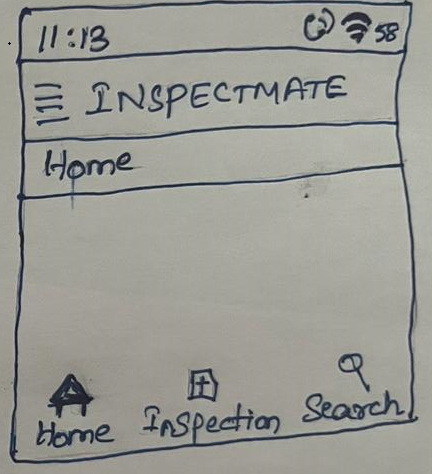 11:13 58
INSPECTMATE
Home
Home Inspection Search